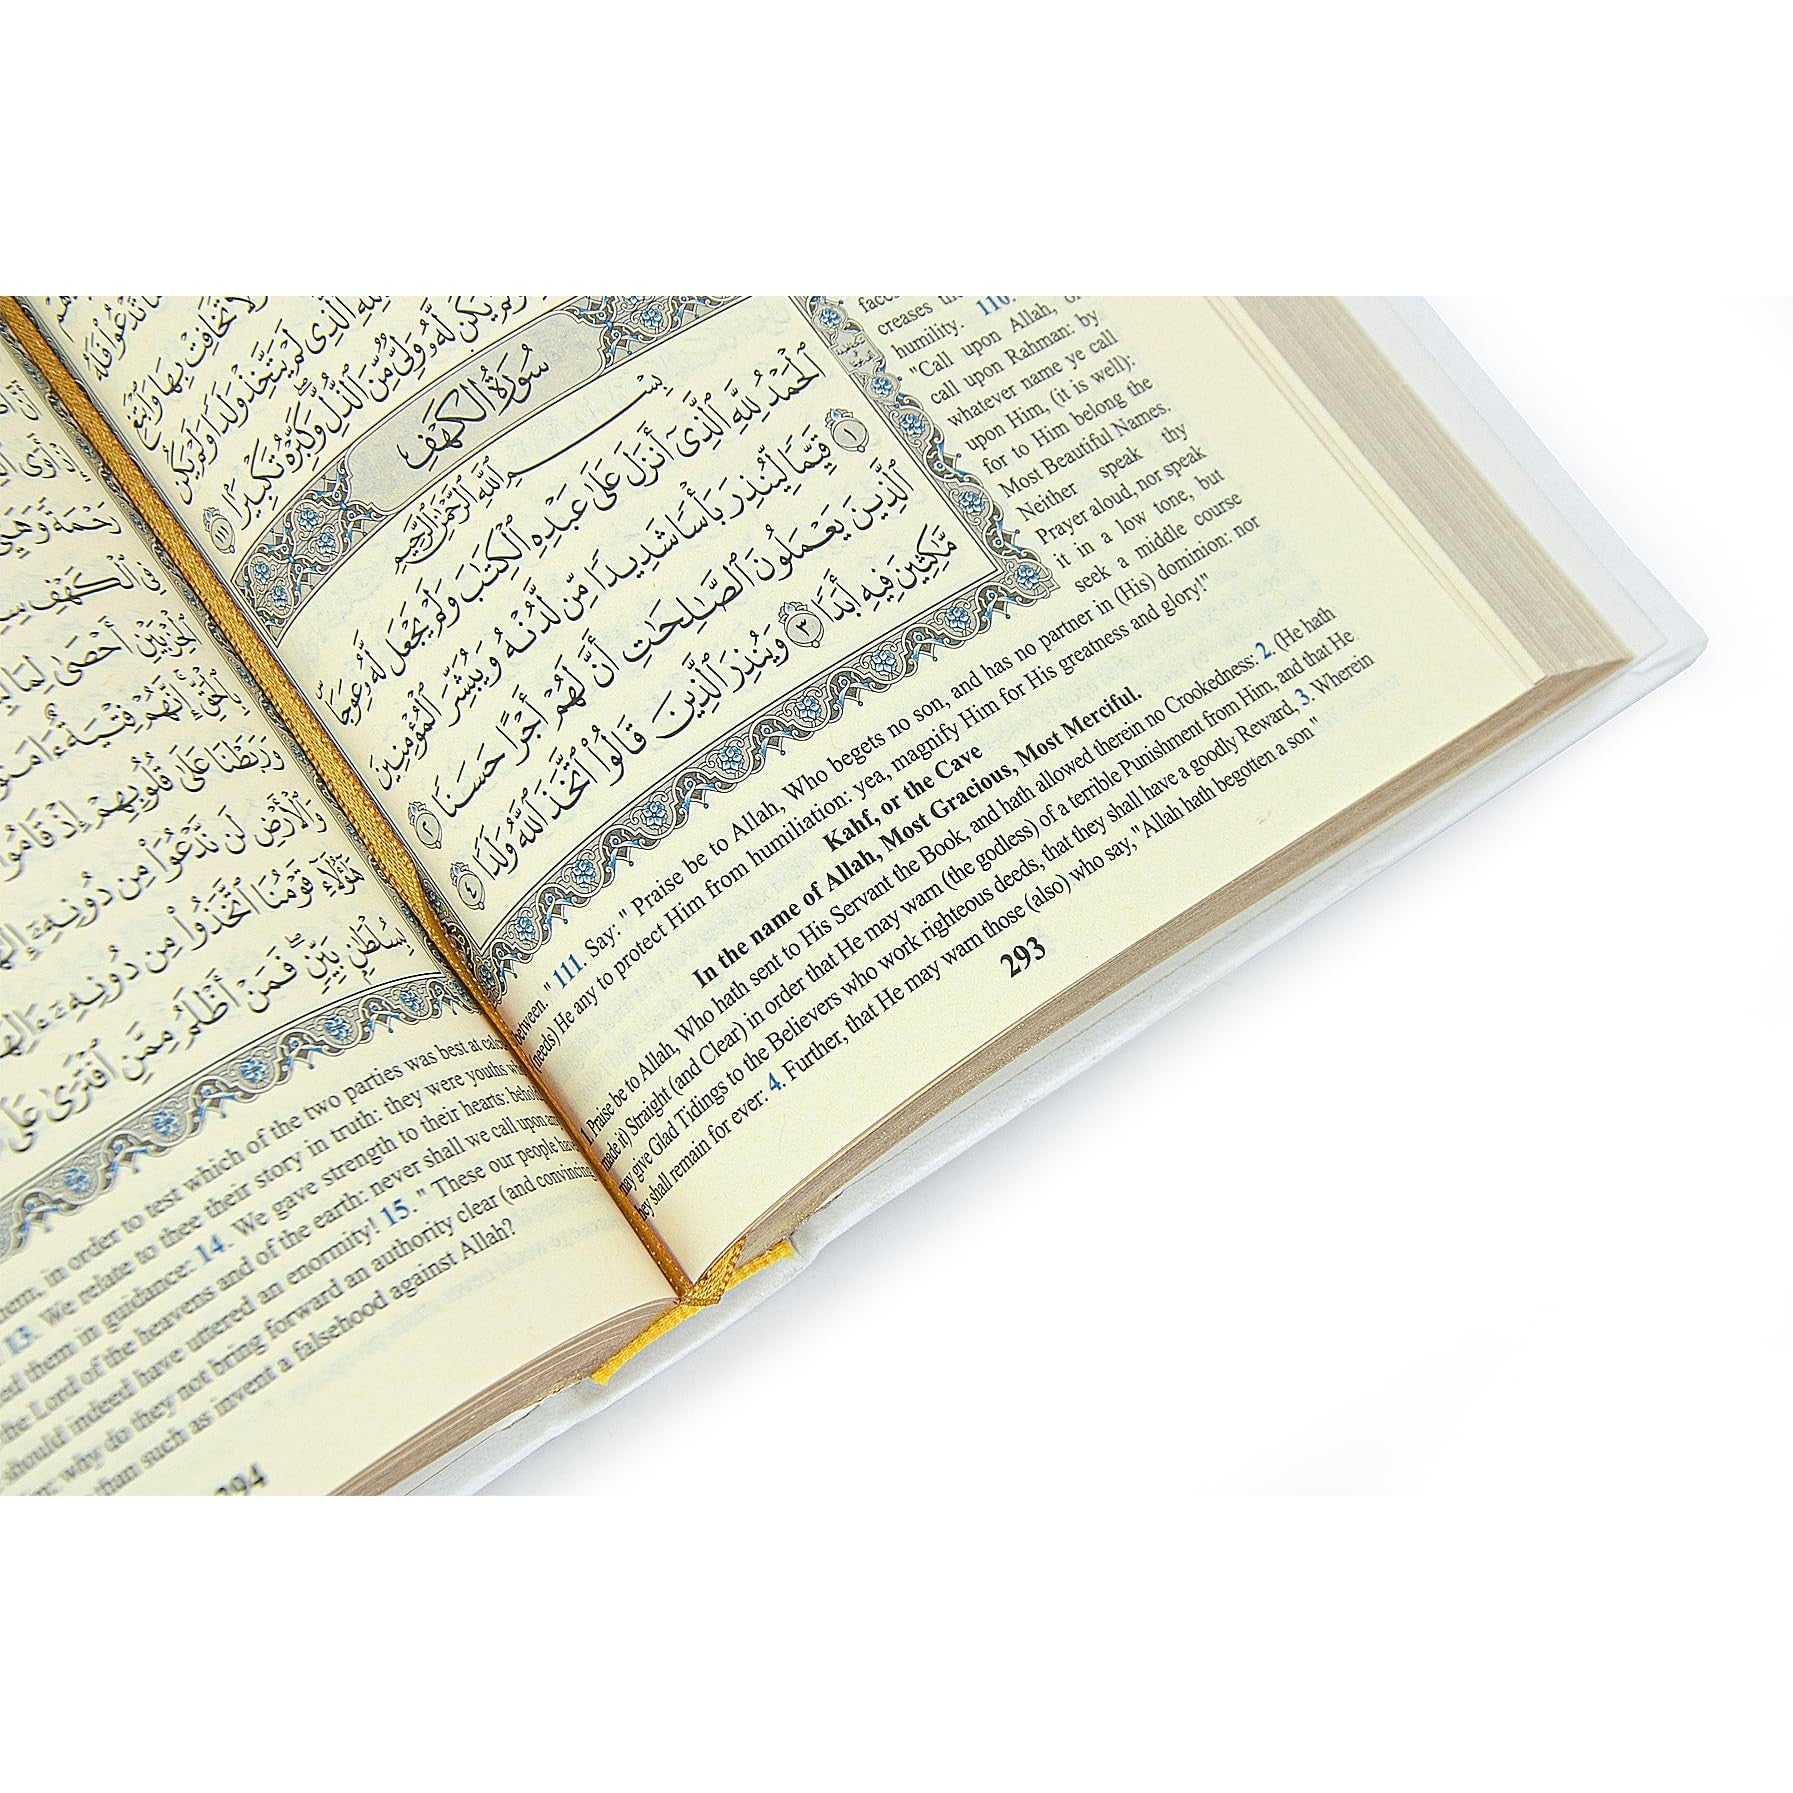 مَّا تَدْعُوا۟ فَلَهُ
وَلَا تُخَافِتْ بِهَا وَٱبْتَغِ
لِلَّهِ ٱلَّذِى لَمْ يَتَّخِذْ وَلَدًا وَلَمْ يَكُن
يَكُن لَّهُۥ وَلِىٌّ مِّنَ ٱلذُّلِّ وَكَبِّرْهُ تَكْبِيرًۢا ١١١
سُورَةُ الكَهْفِ
بِسْمِ ٱللَّهِ ٱلرَّحْمَٰنِ ٱلرَّحِيمِ
ٱلْحَمْدُ لِلَّهِ ٱلَّذِىٓ أَنزَلَ عَلَىٰ عَبْدِهِ ٱلْكِتَٰبَ وَلَمْ يَجْعَل لَّهُۥ عِوَجَاۜ
١ قَيِّمًا لِّيُنذِرَ بَأْسًا شَدِيدًا مِّن لَّدُنْهُ وَيُبَشِّرَ ٱلْمُؤْمِنِينَ
ٱلَّذِينَ يَعْمَلُونَ ٱلصَّٰلِحَٰتِ أَنَّ لَهُمْ أَجْرًا حَسَنًا ٢
مَّٰكِثِينَ فِيهِ أَبَدًا ٣ وَيُنذِرَ ٱلَّذِينَ قَالُوا۟ ٱتَّخَذَ ٱللَّهُ وَلَدًا ٤
creases
humility. 110.
"Call upon Allah, or
call upon Rahman: by
whatever name ye call
upon Him, (it is well):
for to Him belong the
Most Beautiful Names.
Neither speak thy
Prayer aloud, nor speak
it in a low tone, but
seek a middle course
between." 111. Say: " Praise be to Allah, Who begets no son, and has no partner in (His) dominion: nor
(needs) He any to protect Him from humiliation: yea, magnify Him for His greatness and glory!"
Kahf, or the Cave
In the name of Allah, Most Gracious, Most Merciful.
1. Praise be to Allah, Who hath sent to His Servant the Book, and hath allowed therein no Crookedness: 2. (He hath
made it) Straight (and Clear) in order that He may warn (the godless) of a terrible Punishment from Him, and that He
may give Glad Tidings to the Believers who work righteous deeds, that they shall have a goodly Reward, 3. Wherein
they shall remain for ever: 4. Further, that He may warn those (also) who say, "Allah hath begotten a son"
293
إِذْ أَوَى
رَحْمَةً وَهَيِّئْ
فِى ٱلْكَهْفِ
ٱلْحِزْبَيْنِ أَحْصَىٰ لِمَا
بِٱلْحَقِّ إِنَّهُمْ فِتْيَةٌ ءَامَنُوا۟
وَرَبَطْنَا عَلَىٰ قُلُوبِهِمْ إِذْ قَامُوا۟
وَٱلْأَرْضِ لَن نَّدْعُوَا۟ مِن دُونِهِۦٓ إِلَٰهًا
هَٰٓؤُلَآءِ قَوْمُنَا ٱتَّخَذُوا۟ مِن دُونِهِۦٓ ءَالِهَةً
بِسُلْطَٰنٍۭ بَيِّنٍ فَمَنْ أَظْلَمُ مِمَّنِ ٱفْتَرَىٰ عَلَى
them, in order to test which of the two parties was best at
13. We relate to thee their story in truth: they were youths
them in guidance: 14. We gave strength to their hearts: behold
the Lord of the heavens and of the earth: never shall we call upon
should indeed have uttered an enormity! 15. " These our people have
why do they not bring forward an authority clear (and convincing
than such as invent a falsehood against Allah?
294